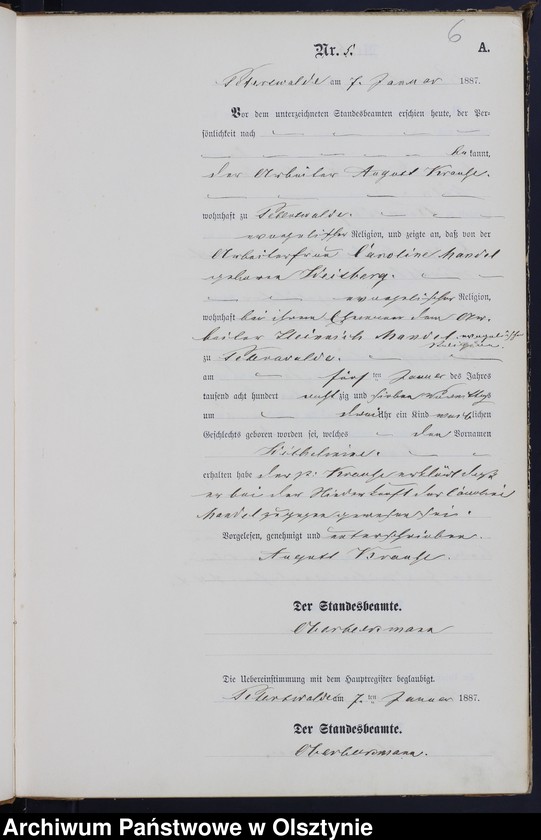 6
Nr. 5.
A.
Peterswalde am 7. Januar 1887.
Vor dem unterzeichneten Standesbeamten erschien heute, der Per-
sönlichkeit nach
bekannt,
der Arbeiter August Krause.
wohnhaft zu Peterswalde.
evangelischer Religion, und zeigte an, daß von der
Arbeiterfrau Caroline Mandel
geborne Weilberg.
evangelischer Religion,
wohnhaft bei ihrem Ehemann dem Ar-
beiter Heinrich Mandel evangelischer
Religion.
zu Peterswalde.
am fünften Januar des Jahres
tausend acht hundert achtzig und sieben Vormittags
um drei Uhr ein Kind weiblichen
Geschlechts geboren worden sei, welches den Vornamen
Wilhelmine.
erhalten habe der p: Krause erklärt daß
er bei der Niederkunft der
Mandel zugegen gewesen sei.
Vorgelesen, genehmigt und unterschrieben.
August Krause.
Der Standesbeamte.
Die Uebereinstimmung mit dem Hauptregister beglaubigt.
Peterswalde am 7. ten Januar 1887.
Der Standesbeamte.
Archiwum Państwowe w Olsztynie